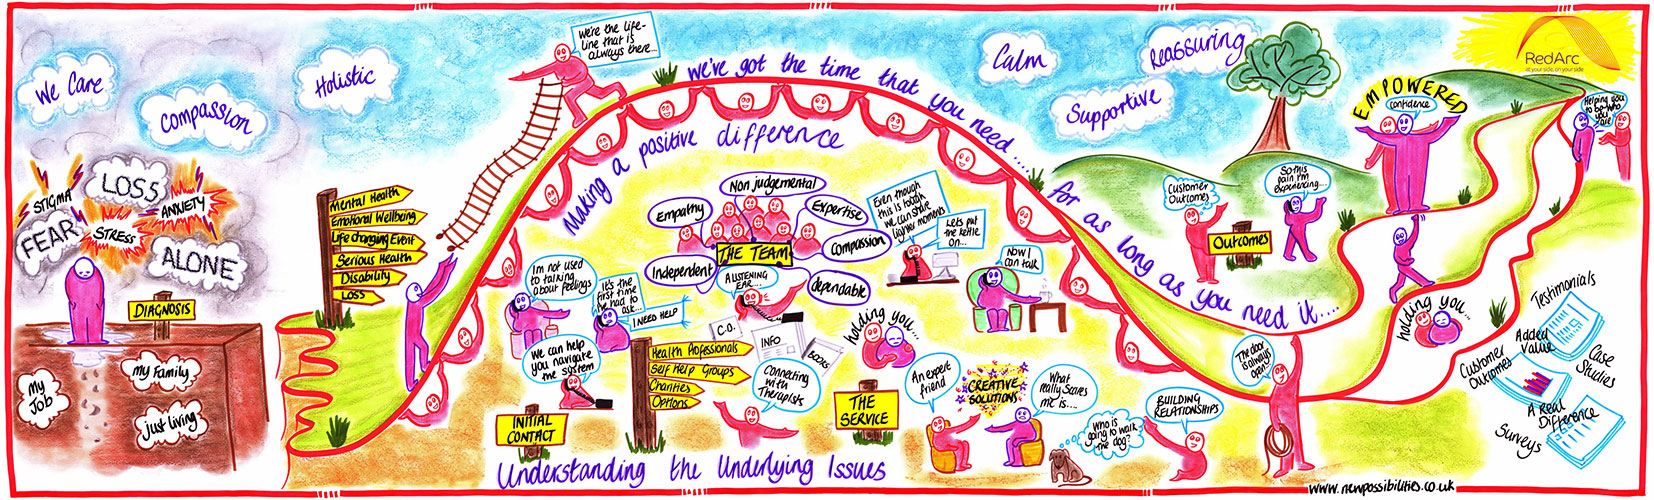 We Care
Compassion
Holistic
STIGMA
LOSS
ANXIETY
FEAR
STRESS
ALONE
DIAGNOSIS
My Job
my Family
just living
Mental Health
Emotional Wellbeing
Life changing Event
Serious Health
Disability
Loss
We're the life-
line that is
always there...
we've got the time that you need.... for as long as you need it....
Making a positive difference
Calm
Reassuring
Supportive
Non judgemental
Empathy
Expertise
THE TEAM
Compassion
Independent
dependable
A LISTENING
EAR....
Even though
this is tough
we can share
lighter moments
Lets put
the kettle
on...
Now I
can talk
I'm not used
to talking
about feelings
It's the
first time
I've had to
ask...
I NEED HELP
We can help
you navigate
the system
INITIAL
CONTACT
C.O.
INFO
BOOKS
Health Professionals
Self Help Groups
Charities
Options
Connecting
with
therapists
holding you...
THE
SERVICE
An expert
friend
CREATIVE
SOLUTIONS
What
really scares
me is....
Who is
going to walk
the dog?
BUILDING
RELATIONSHIPS
Understanding the Underlying Issues
Customer
Outcomes
OUTCOMES
So this
pain I'm
experiencing...
EMPOWERED
confidence
Helping you
to be who
you
are
RedArc
at your side, on your side
The door
is always
open...
holding you...
Testimonials
Added
Value
Case
Studies
Customer
Outcomes
A Real
Difference
Surveys
www.newpossibilities.co.uk